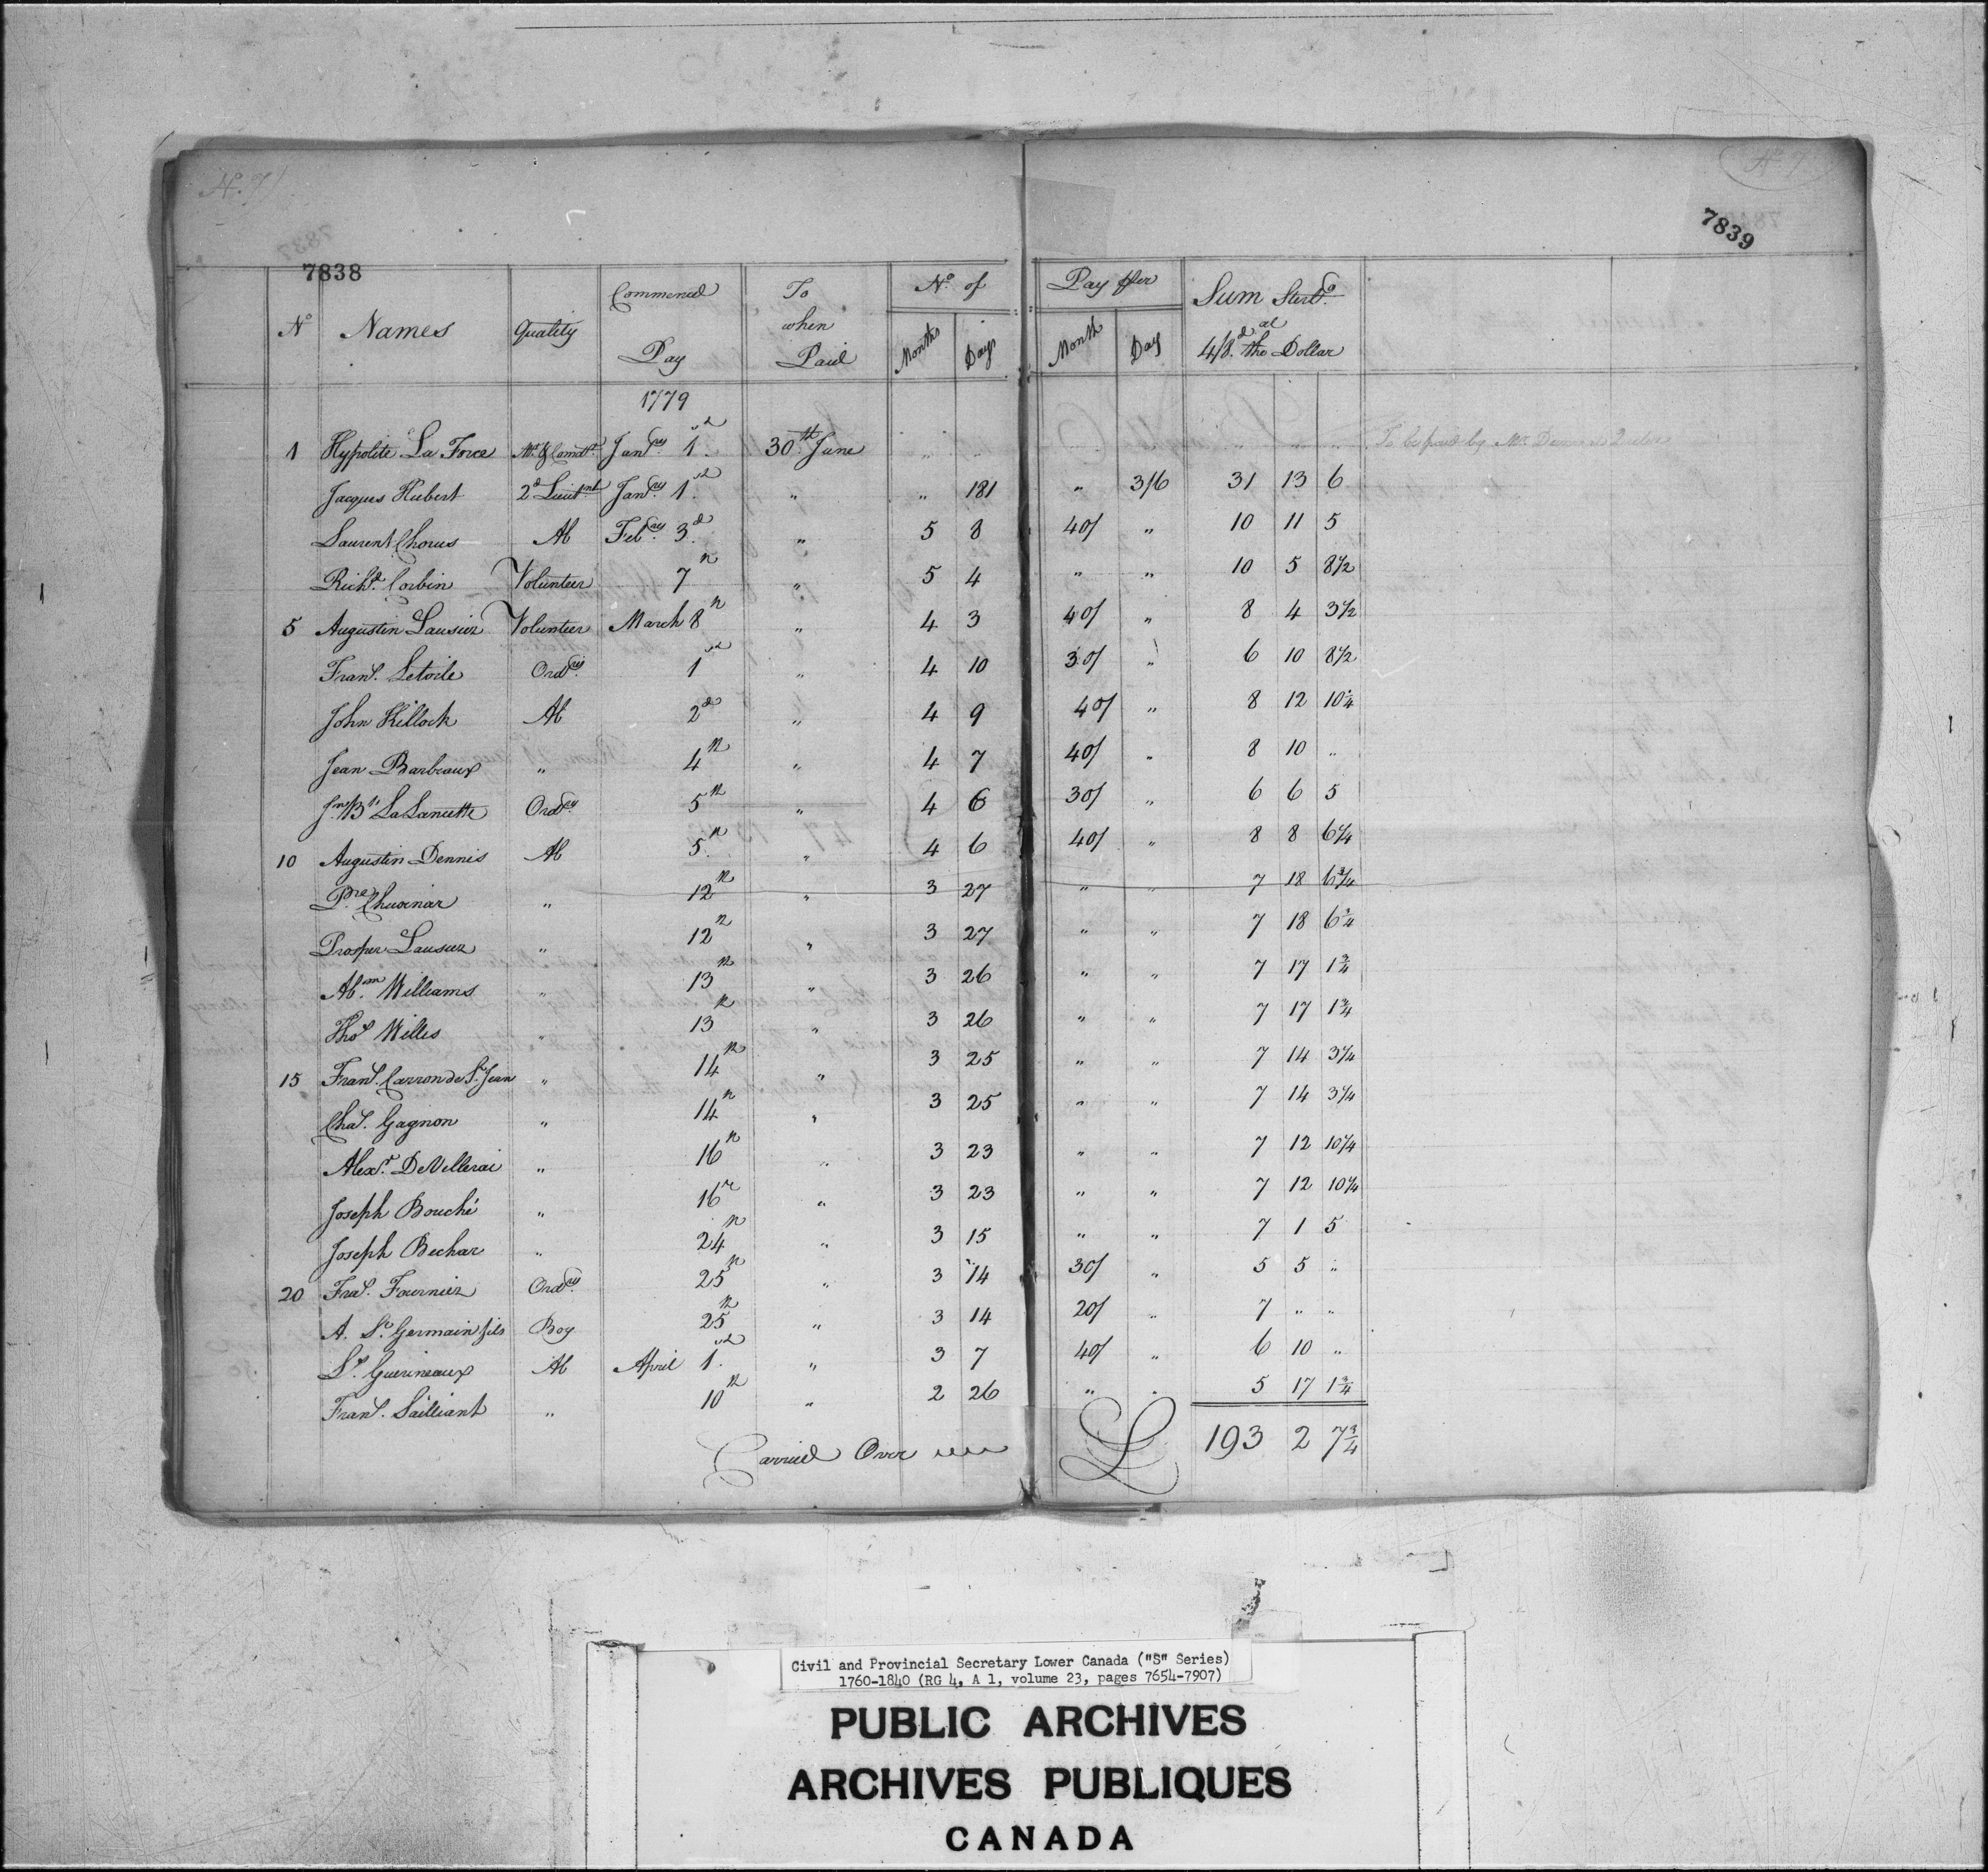 No. 7
No. 7
7838
7839
No Names Quality Commenced Pay To when Paid No. of Months Days Pay Per Month Day Sum Sterlg. at 4/8d. the Dollar
1779
1 Hypolite La Force Jany. 1st 30th June " " " " "
Jacques Hubert 2d Lieutnt Jany. 1st " " 181 " 3/6 31 13 6
Laurent Chorus Ab Feby. 3d " 5 8 40/ " 10 11 5
Richd. Corbin Volunteer 7th " 5 4 " " 10 5 8 1/2
5 Augustin Lausiez Volunteer March 8th " 4 3 40/ " 8 4 3 1/2
Frans. Letoile Ordry. 1st " 4 10 30/ " 6 10 8 1/2
John Killock Ab 2d " 4 9 40/ " 8 12 10 1/4
Jean Barbeaux " 4th " 4 7 40/ " 8 10 "
Jn. Bte. La Lancette Ordry. 5th " 4 6 30/ " 6 6 5
10 Augustin Dennis Ab 5th " 4 6 40/ " 8 8 6 1/4
Pre. Chuoinar " 12th " 3 27 " " 7 18 6 3/4
Prosper Lausiez " 12th " 3 27 " " 7 18 6 3/4
Abm. Williams " 13th " 3 26 " " 7 17 1 3/4
Thos. Willis " 13th " 3 26 " " 7 17 1 3/4
15 Frans. Carron de St. Jean " 14th " 3 25 " " 7 14 3 1/4
Chas. Gagnon " 14th " 3 25 " " 7 14 3 1/4
Alexr. DeVellerai " 16th " 3 23 " " 7 12 10 1/4
Joseph Bouché " 16th " 3 23 " " 7 12 10 1/4
Joseph Bechar " 24th " 3 15 " " 7 1 5
20 Fras. Fournier Ordry. 25th " 3 14 30/ " 5 5 "
A. St. Germain fils Boy 25th " 3 14 20/ " 7 " "
Ls. Guerineaux Ab April 1st " 3 7 40/ " 6 10 "
Frans. Sailliant " 10th " 2 26 " " 5 17 1 3/4
Carried Over £ 193 2 7 3/4
Civil and Provincial Secretary Lower Canada ("S" Series)
1760-1840 (RG 4, A 1, volume 23, pages 7654-7907)
PUBLIC ARCHIVES
ARCHIVES PUBLIQUES
CANADA